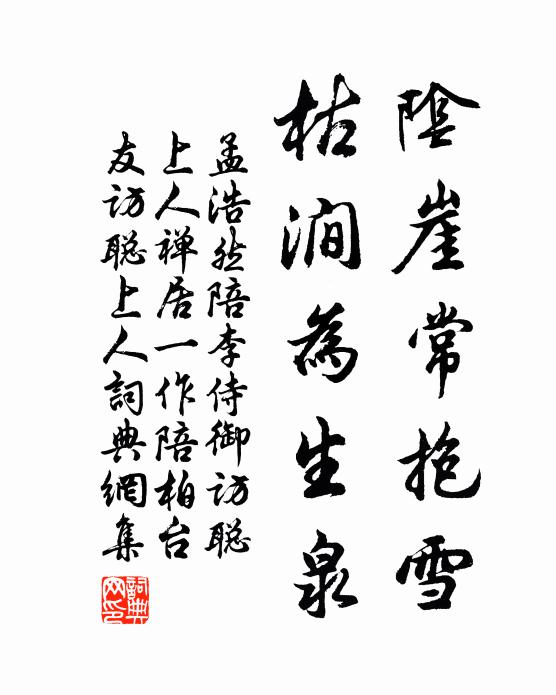 陰崖常抱雪
枯澗為生泉
孟浩然陪李侍御訪聡
上人禅居一作陪柏台
友訪聡上人詞典網集
詞典
网印